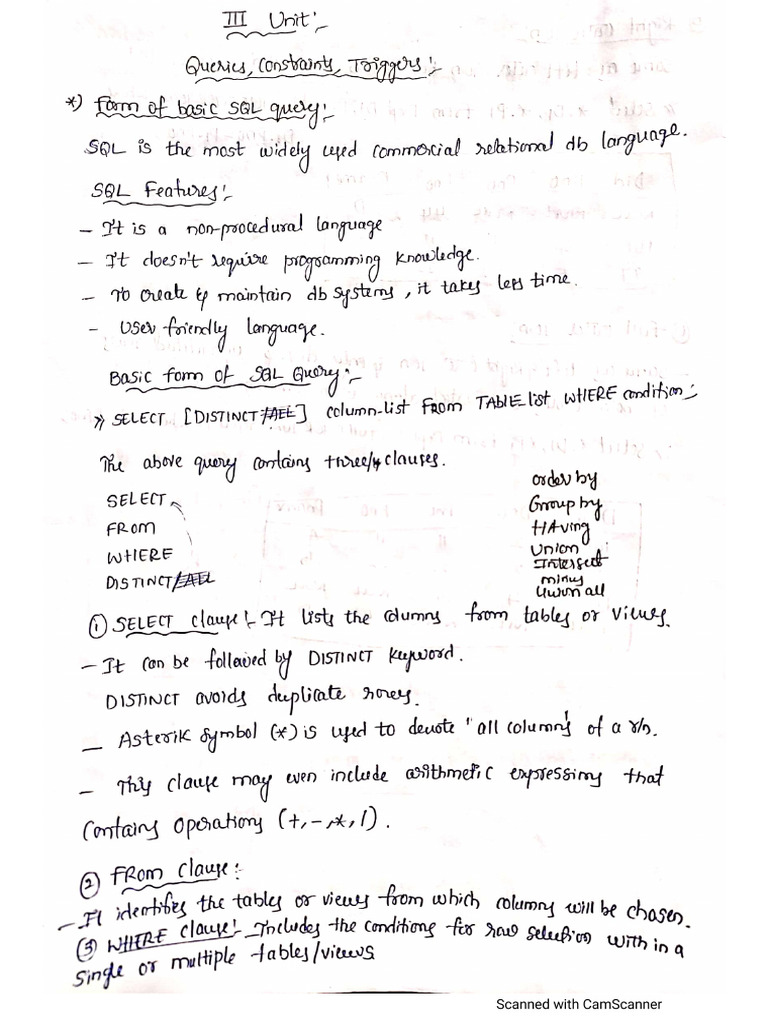 III Unit:-
Queries, Constraints, Triggers:-
*) Form of basic SQL query:-
SQL is the most widely used commercial relational db language.
SQL Features:-
- It is a non-procedural language
- It doesn't require programming knowledge.
- To create & maintain db systems, it takes less time.
- User friendly language.
Basic form of SQL Query:-
» SELECT [DISTINCT/ALL] column-list FROM TABLE list WHERE condition:-
The above query contains three/4 clauses.
SELECT
FROM
WHERE
DISTINCT/ALL
order by
Group by
HAving
Union
Intersect
minus
Union all
① SELECT clause:- It lists the columns from tables or views.
- It can be followed by DISTINCT keyword.
DISTINCT avoids duplicate rows.
- Asterik symbol (*) is used to denote "all columns' of a r/n.
- This clause may even include arithmetic expressions that
contains operations (+,-,*,/).
② FROM clause:-
- It identifies the tables or views from which columns will be chosen.
(3) WHERE clause:- Includes the conditions for row selection with in a
single or multiple tables/views
Scanned with CamScanner